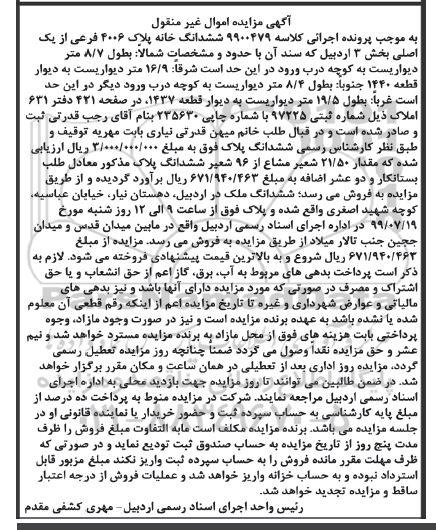 آگهی مزایده اموال غیر منقول
به موجب پرونده اجرائی کلاسه ۹۹۰۰۴۷۹ ششدانگ خانه پلاک ۴۰۰۶ فرعی از یک
اصلی بخش ۳ اردبیل که سند آن با حدود و مشخصات شمالاً: بطول ۸/۷ متر
دیواریست به کوچه درب ورود در این حد است شرقاً: ۱۶/۹ متر دیواریست به دیوار
قطعه ۱۴۴۰ جنوباً: بطول ۸/۴ متر دیواریست به کوچه درب ورود دیگر در این حد
است غرباً: بطول ۱۹/۵ متر دیواریست به دیوار قطعه ۱۴۳۷، در صفحه ۴۲۱ دفتر ۶۳۱
املاک ذیل شماره ثبتی ۹۷۲۲۵ با شماره چاپی ۲۳۵۶۳۰ بنام آقای رجب قدرتی ثبت
و صادر شده است و در قبال طلب خانم میهن قدرتی نیاری بابت مهریه توقیف و
طبق نظر کارشناس رسمی ششدانگ پلاک فوق به مبلغ ۳/۰۰۰/۰۰۰/۰۰۰ ریال ارزیابی
شده که مقدار ۲۱/۵۰ شعیر مشاع از ۹۶ شعیر ششدانگ پلاک مذکور معادل طلب
بستانکار و دو عشر اضافه به مبلغ ۶۷۱/۹۴۰/۴۶۳ ریال برآورد گردیده و از طریق
مزایده به فروش می رسد؛ ششدانگ ملک در اردبیل، دهستان نیار، خیابان عباسیه،
کوچه شهید اصغری واقع شده و پلاک فوق از ساعت ۹ الی ۱۲ روز شنبه مورخ
۹۹/۰۷/۱۹ در اداره اجرای اسناد رسمی اردبیل واقع در مابین میدان قدس و میدان
ججین جنب تالار میلاد از طریق مزایده به فروش می رسد. مزایده از مبلغ
۶۷۱/۹۴۰/۴۶۳ ریال شروع و به بالاترین قیمت پیشنهادی فروخته می شود. لازم به
ذکر است پرداخت بدهی های مربوط به آب، برق، گاز اعم از حق انشعاب و یا حق
اشتراک و مصرف در صورتی که مورد مزایده دارای آنها باشد و نیز بدهی های
مالیاتی و عوارض شهرداری و غیره تا تاریخ مزایده اعم از اینکه رقم قطعی آن معلوم
شده یا نشده باشد به عهده برنده مزایده است و نیز در صورت وجود مازاد، وجوه
پرداختی بابت هزینه های فوق از محل مازاد به برنده مزایده مسترد خواهد شد و نیم
عشر و حق مزایده نقداً وصول می گردد ضمناً چنانچه روز مزایده تعطیل رسمی
گردد، مزایده روز اداری بعد از تعطیلی در همان ساعت و مکان مقرر برگزار خواهد
شد. در ضمن طالبین می توانند تا روز مزایده جهت بازدید محلی به اداره اجرای
اسناد رسمی اردبیل مراجعه نمایند. شرکت در مزایده منوط به پرداخت ده درصد از
مبلغ پایه کارشناسی به حساب سپرده ثبت و حضور خریدار یا نماینده قانونی او در
جلسه مزایده می باشد. برنده مزایده مکلف است مابه التفاوت مبلغ فروش را ظرف
مدت پنج روز از تاریخ مزایده به حساب صندوق ثبت تودیع نماید و در صورتی که
ظرف مهلت مقرر مانده فروش را به حساب سپرده ثبت واریز نکند مبلغ مزبور قابل
استرداد نبوده و به حساب خزانه واریز خواهد شد و عملیات فروش از درجه اعتبار
ساقط و مزایده تجدید خواهد شد.
رئیس واحد اجرای اسناد رسمی اردبیل – مهری کشفی مقدم